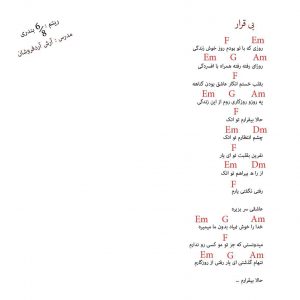 بی قرار
ریتم : 6/8 بندری
مدرس : آرش آردفروشان
F Em
روزی که با تو بودم روز خوش زندگی
Em G Am
روزای رفته رفته همراه با افسردگی
F Em
بقلب خستم انگار عاشق بودن گناهه
Em G Am
یه روزو روزگاری روم از این زندگی
F
حالا بیقرارم تو اتک
Em Dm
چشم انتظارم تو اتک
F
نفرین بقلبت تو ای یار
Em Dm
از راه بیراهم تو اتک
F
رفتی نگفتی یارم
عاشقی سر بزیره
Em G Am
خدا را خوش نیاد بدون ما میمیره
F
میدونستی که جز تو مو کسی رو ندارم
Em G Am
تنهام گذشتی ای یار رفتی از روزگارم
حالا بیقرارم ...